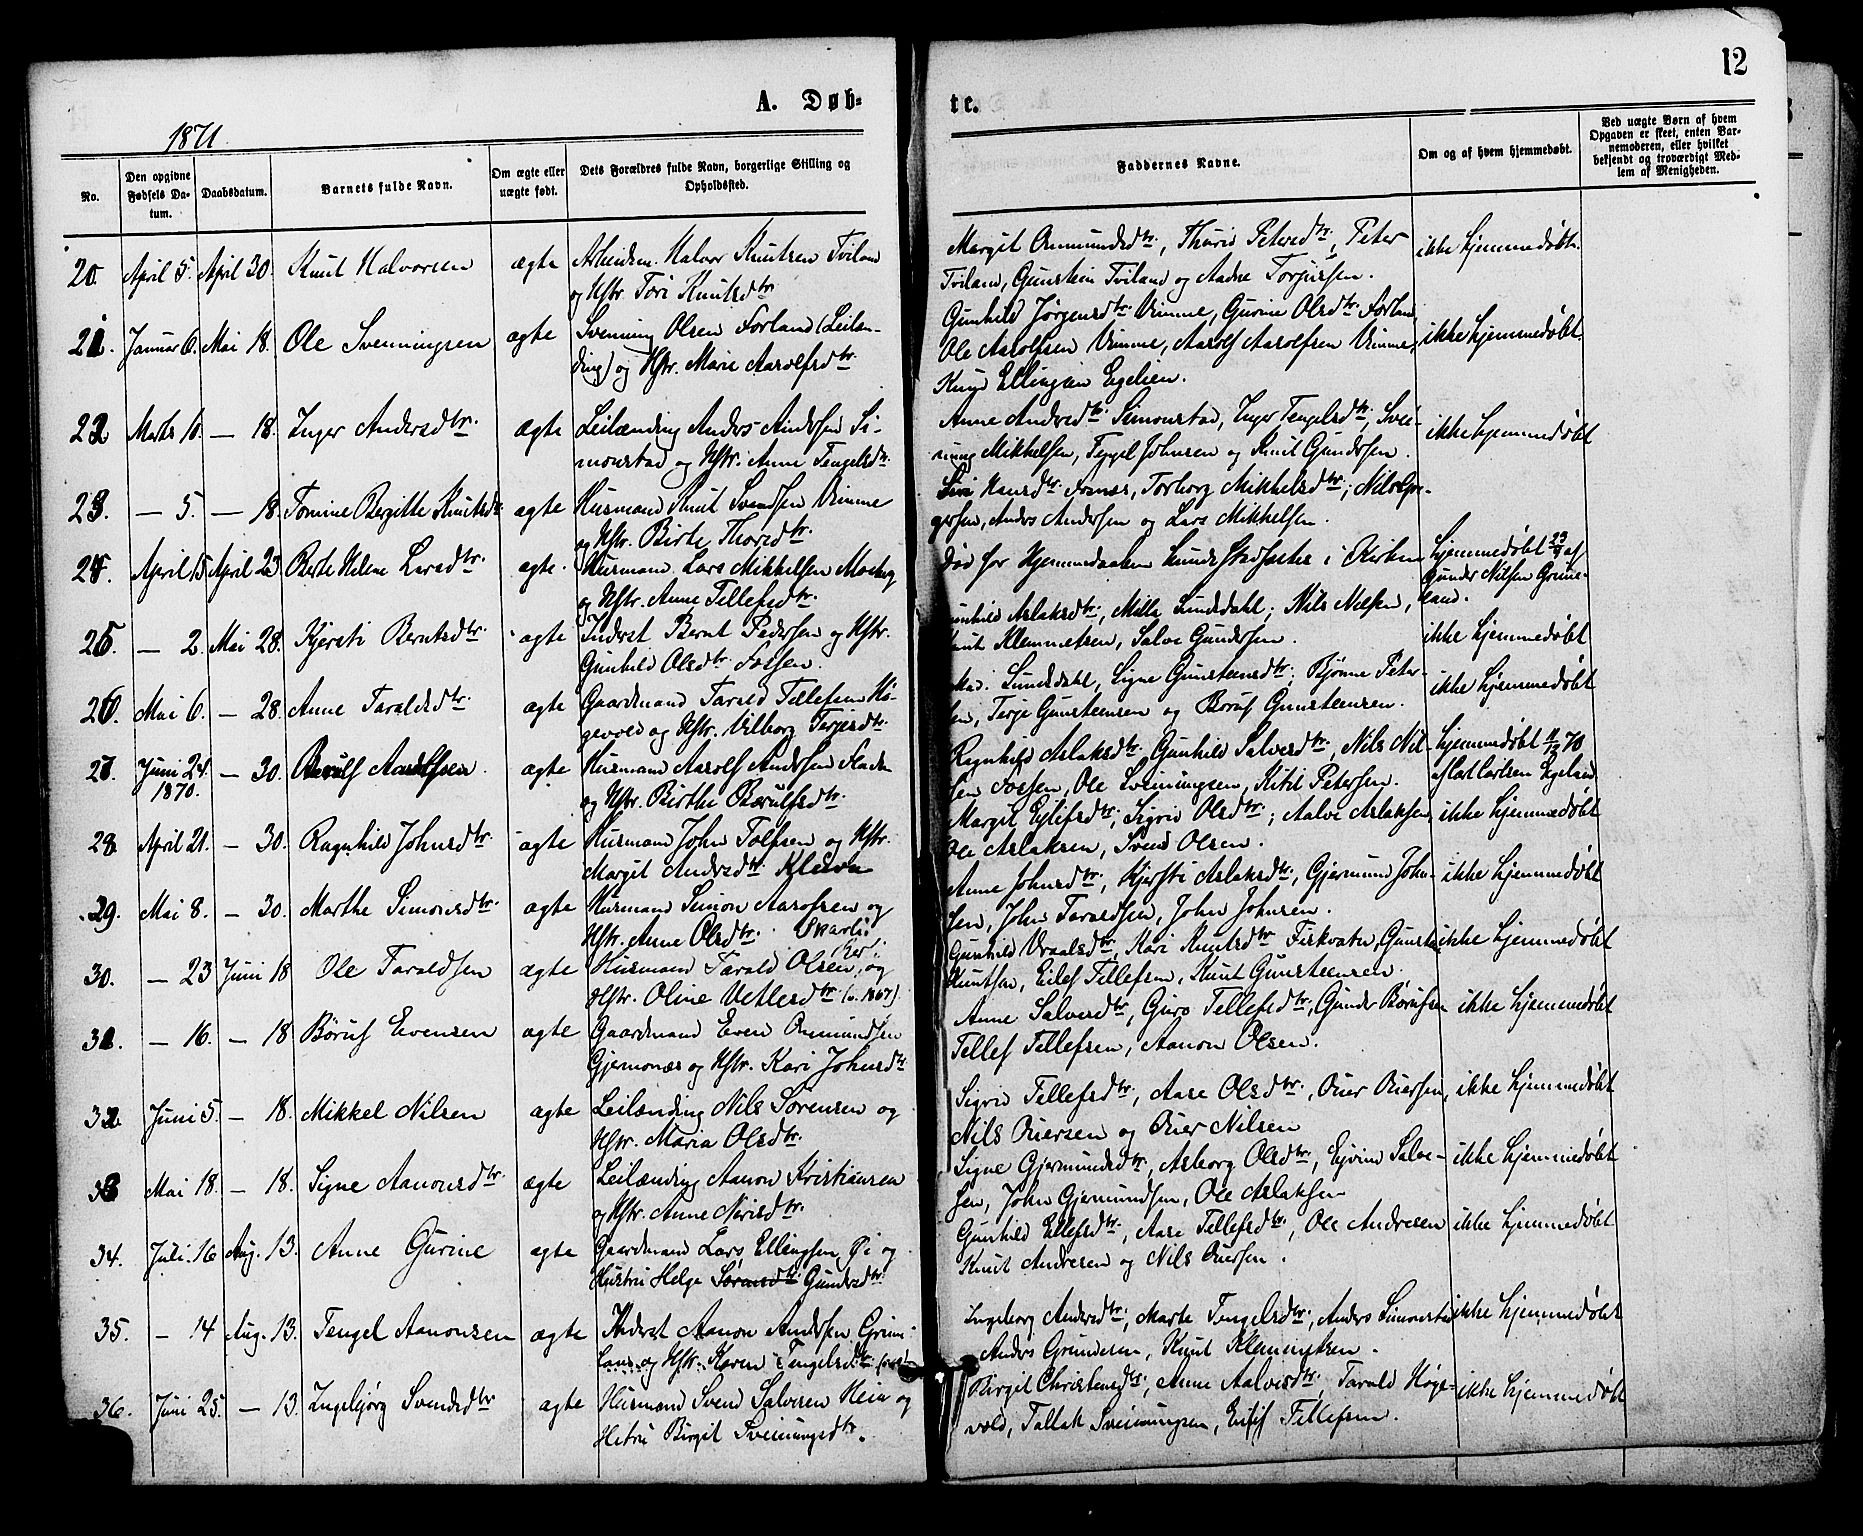 12
A. Døb-
te.
1871.
No.
Den opgivne Fødsels Datum.
Daabsdatum.
Barnets fulde Navn.
Om ægte eller uægte født.
Dets Forældres fulde Navn, borgerlige Stilling og Opholdssted.
Faddernes Navne.
Om og af hvem hjemmedøbt.
Ved uægte Børn af hvem Opgaven er skeet, enten Barnemoderen, eller hvilket bekjendt og troværdigt Medlem af Menigheden.
20. April 5. April 30. Knut Halvorsen ægte Arbeidsm. Halvor Knutsen Tviland
og Hstr. Tóri Knutsdtr.
Margit Omundsdtr., Thurid Petersdtr., Peter ikke hjemmedøbt.
Tviland, Gunstein Tviland og Aadne Torjusen.
21. Januar 6. Mai 18. Ole Svenningsen ægte Svenning Olsen Forland (Leilæn-
ding) og Hstr. Marie Aarolfsdtr.
Gunhild Jørgensdtr. Vimme, Gurine Olsdtr. Forland
Ole Aarolfsen Vimme, Aarolf Aarolfsen Vimme, ikke hjemmedøbt.
Knud Ellingsen Egelien.
22 Marts 10. — 18. Inger Andersdtr. ægte Leilænding Anders Andersen Si-
monstad og Hstr. Anne Tengelsdtr.
Anne Andersdtr. Simonstad, Inger Tengelsdtr., Svei- ikke hjemmedøbt
nung Mikkelsen, Tengel Johnsen og Knut Gundersen.
23. — 5. — 18. Tomine Bergitte Knutsdtr. ægte Husmand Knut Svendsen Vimme
og Hstr. Birte Thorsdtr.
Siri Hansdtr. Fosnæs, Torborg Mikkelsdtr.,
Anders Andersen og Lars Mikkelsen.
24. April 15 April 23 Berte Helene Larsdtr. ægte. Husmand Lars Mikkelsen Mosberg
og Hstr. Anne Tellefsdtr.
Død før Hjemmedaaben kunde stadfæstes i Kirken
hjemmedøbt 23/4 af
Gunder Nilsen Grime-
land.
25. — 2. Mai 28. Kjersti Berntsdtr. ægte Inderst Bernt Pedersen og Hstr.
Gunhild Olsdtr. Fossen.
Gunhild Aslaksdtr., Mille Sundsdahl, Nils Nilsen, ikke hjemmedøbt
Knut Klemmetsen, Salve Gundersen.
26. Mai 6. — 28. Anne Taraldsdtr. ægte Gaardmand Tarald Tellefsen Hø-
gevold og Hstr. Vilborg Terjesdtr.
Mad. Sundsdahl, Signe Gunsteensdtr., Bjønne Peter- ikke hjemmedøbt
sen, Terje Gunsteensen og Børuf Gunsteensen.
27. Juni 24. — 30. Børulf Aarolfsen. ægte Husmand Aarolf Andersen Fladen
1870. og Hstr. Birthe Børulfsdtr.
Ragnhild Aslaksdtr., Gunhild Salvesdtr., Nils Nil- hjemmedøbt 11/12 70
sen Fossen, Ole Sveinungsen, Kitil Petersen. af Carl Carlsen Egeland
28 April 21. — 30. Ragnhild Johnsdtr. ægte Husmand John Tolfsen og Hstr.
Margit Andersdtr. Kleiva
Margit Eilefsdtr., Sigrid Olsdtr., Aalve Aslaksen, ikke hjemmedøbt
Ole Aslaksen, Svend Olsen.
29. Mai 8. — 30. Marthe Simonsdtr. ægte Husmand Simon Aarofsen og
Hstr. Anne Olsdtr. Skarli
Anne Johnsdtr., Kjersti Aslaksdtr., Gjermund John- ikke hjemmedøbt
sen, John Taraldsen, John Johnsen.
30. — 23 Juni 18 Ole Taraldsen ægte Husmand Tarald Olsen, og
Hstr. Oline Vetlesdtr. (v. 1867)
Gunhild Vraalsdtr., Kari Knutsdtr. Fiskvatn, ikke hjemmedøbt
Knutsen, Eilef Tellefsen, Knut Gunsteensen.
31. — 16. — 18 Børuf Evensen ægte Gaardmand Even Omundsen
Gjermonæs og Hstr. Kari Johnsdtr.
Anne Salvesdtr., Guro Tellefsdtr., Gunder Børufsen ikke hjemmedøbt
Tellef Tellefsen, Aanon Olsen.
32 Juni 5. — 18. Mikkel Nilsen ægte Leilænding Nils Sørensen og
Hstr. Maria Olsdtr.
Sigrid Tellefsdtr., Aase Olsdtr., Ouer Ouersen, ikke hjemmedøbt
Nils Ouersen og Ouer Nilsen
33 Mai 18. — 18. Signe Aanonsdtr. ægte Leilænding Aanon Kristiansen
og Hstr. Anne Nirisdtr.
Signe Gjermundsdtr., Asborg Olsdtr., Eivind Salve- ikke hjemmedøbt
sen, John Gjermundsen, Ole Aslaksen
34. Juli 16 Aug. 13. Anne Gurine ægte Gaardmand Lars Ellingsen Øi og
Hustru Helge Gundersdtr.
Gunhild Ellefsdtr., Aase Tellefsdtr., Ole Andresen ikke hjemmedøbt
Knut Andresen og Nils Ouersen.
35. — 14 Aug. 13. Tengel Aanonsen ægte Inderst Aanon Andersen Grime-
land og Hstr. Karen Tengelsdtr.
Ingeborg Andersdtr., Marte Tengelsdtr., Anders Simonstad ikke hjemmedøbt
Anders Gundersen, Knut Klemmetsen.
36. Juni 25. — 13. Ingebjørg Svendsdtr. ægte Husmand Svend Salvesen Heia og
Hstru Birgit Sveinungsdtr.
Birgit Christensdtr., Anne Aalvesdtr., Tarald Høge- ikke hjemmedøbt
vold, Tallak Sveinungsen, Eilif Tellefsen.